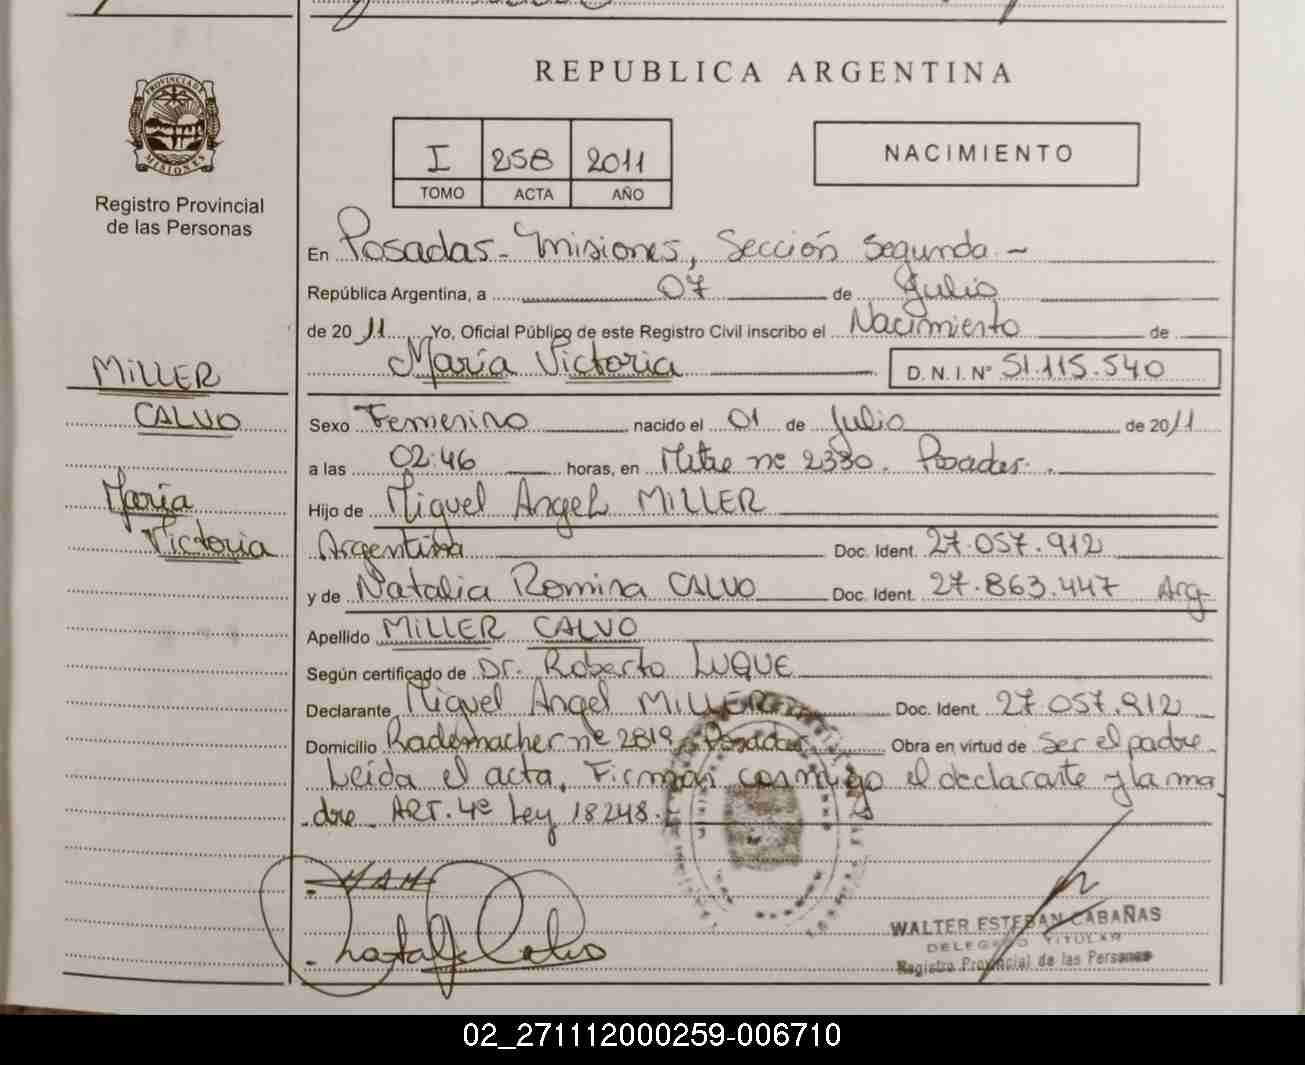 REPUBLICA ARGENTINA
PROVINCIA DE
MISIONES
Registro Provincial
de las Personas
I 258 2011
TOMO ACTA AÑO
NACIMIENTO
En Posadas - Misiones, Sección Segunda. -
República Argentina, a 07 de Julio
de 2011 Yo, Oficial Público de este Registro Civil inscribo el Nacimiento de
María Victoria D. N. I. Nº 51.115.540
MILLER
CALVO
María
Victoria
Sexo Femenino nacido el 01 de Julio de 2011
a las 02:46 horas, en Mitre nº 2330. Posadas.
Hijo de Miguel Angel MILLER
Argentina Doc. Ident. 27.057.912
y de Natalia Romina CALVO Doc. Ident. 27.863.447 Arg
Apellido MILLER CALVO
Según certificado de Dr. Roberto LUQUE
Declarante Miguel Angel MILLER Doc. Ident. 27.057.912
Domicilio Rademacher nº 2819 Posadas Obra en virtud de ser el padre.
Leída el acta, Firman conmigo el declarante y la ma
dre. ART. 4º Ley 18248.
WALTER ESTEBAN CABAÑAS
DELEGADO TITULAR
Registro Provincial de las Personas
02_271112000259-006710